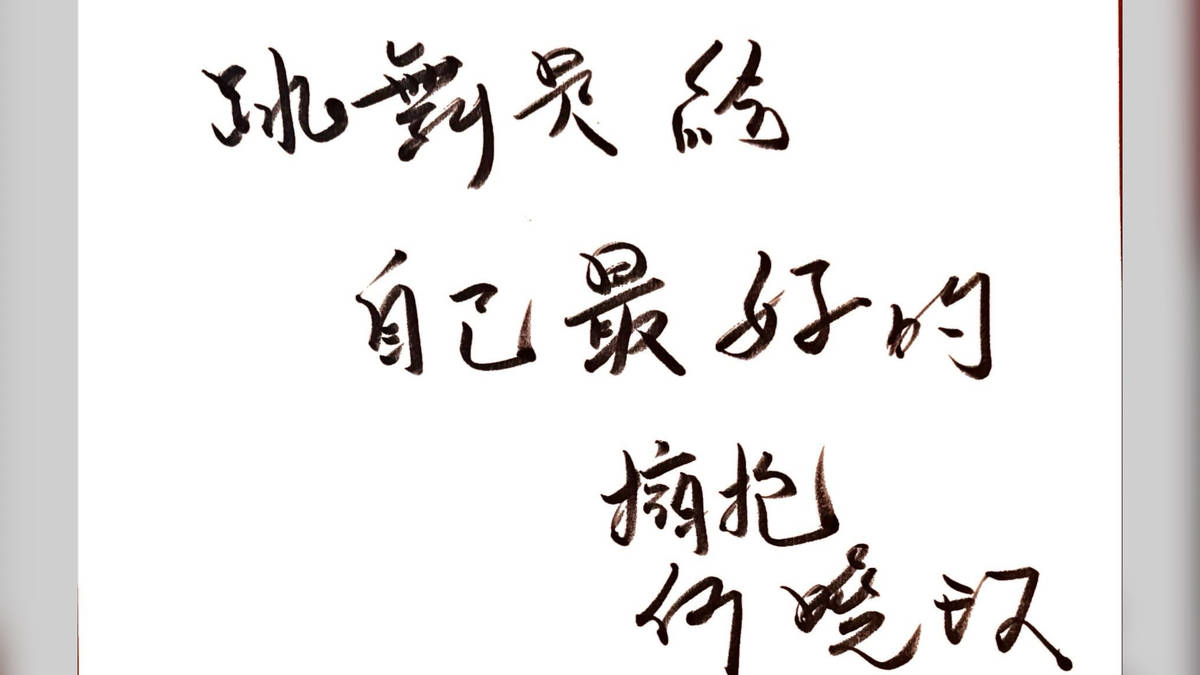 跳舞是給
自己最好的
擁抱
何曉玫